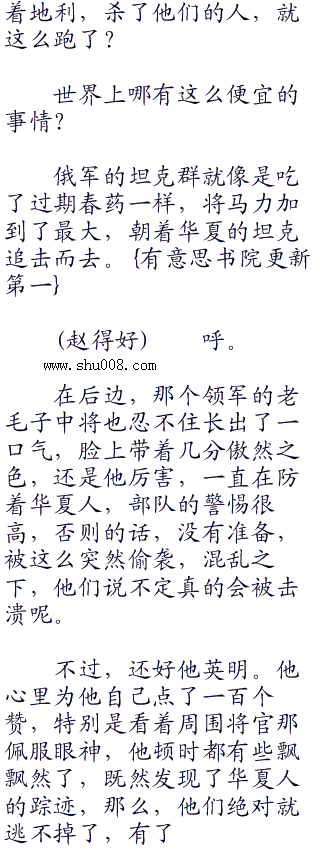 着地利，杀了他们的人，就
这么跑了？
世界上哪有这么便宜的
事情？
俄军的坦克群就像是吃
了过期春药一样，将马力加
到了最大，朝着华夏的坦克
追击而去。{有意思书院更新
第一}
(赵得好) 呼。
www.shu008.com
在后边，那个领军的老
毛子中将也忍不住长出了一
口气，脸上带着几分傲然之
色，还是他厉害，一直在防
着华夏人，部队的警惕很
高，否则的话，没有准备，
被这么突然偷袭，混乱之
下，他们说不定真的会被击
溃呢。
不过，还好他英明。他
心里为他自己点了一百个
赞，特别是看着周围将官那
佩服眼神，他顿时都有些飘
飘然了，既然发现了华夏人
的踪迹，那么，他们绝对就
逃不掉了，有了